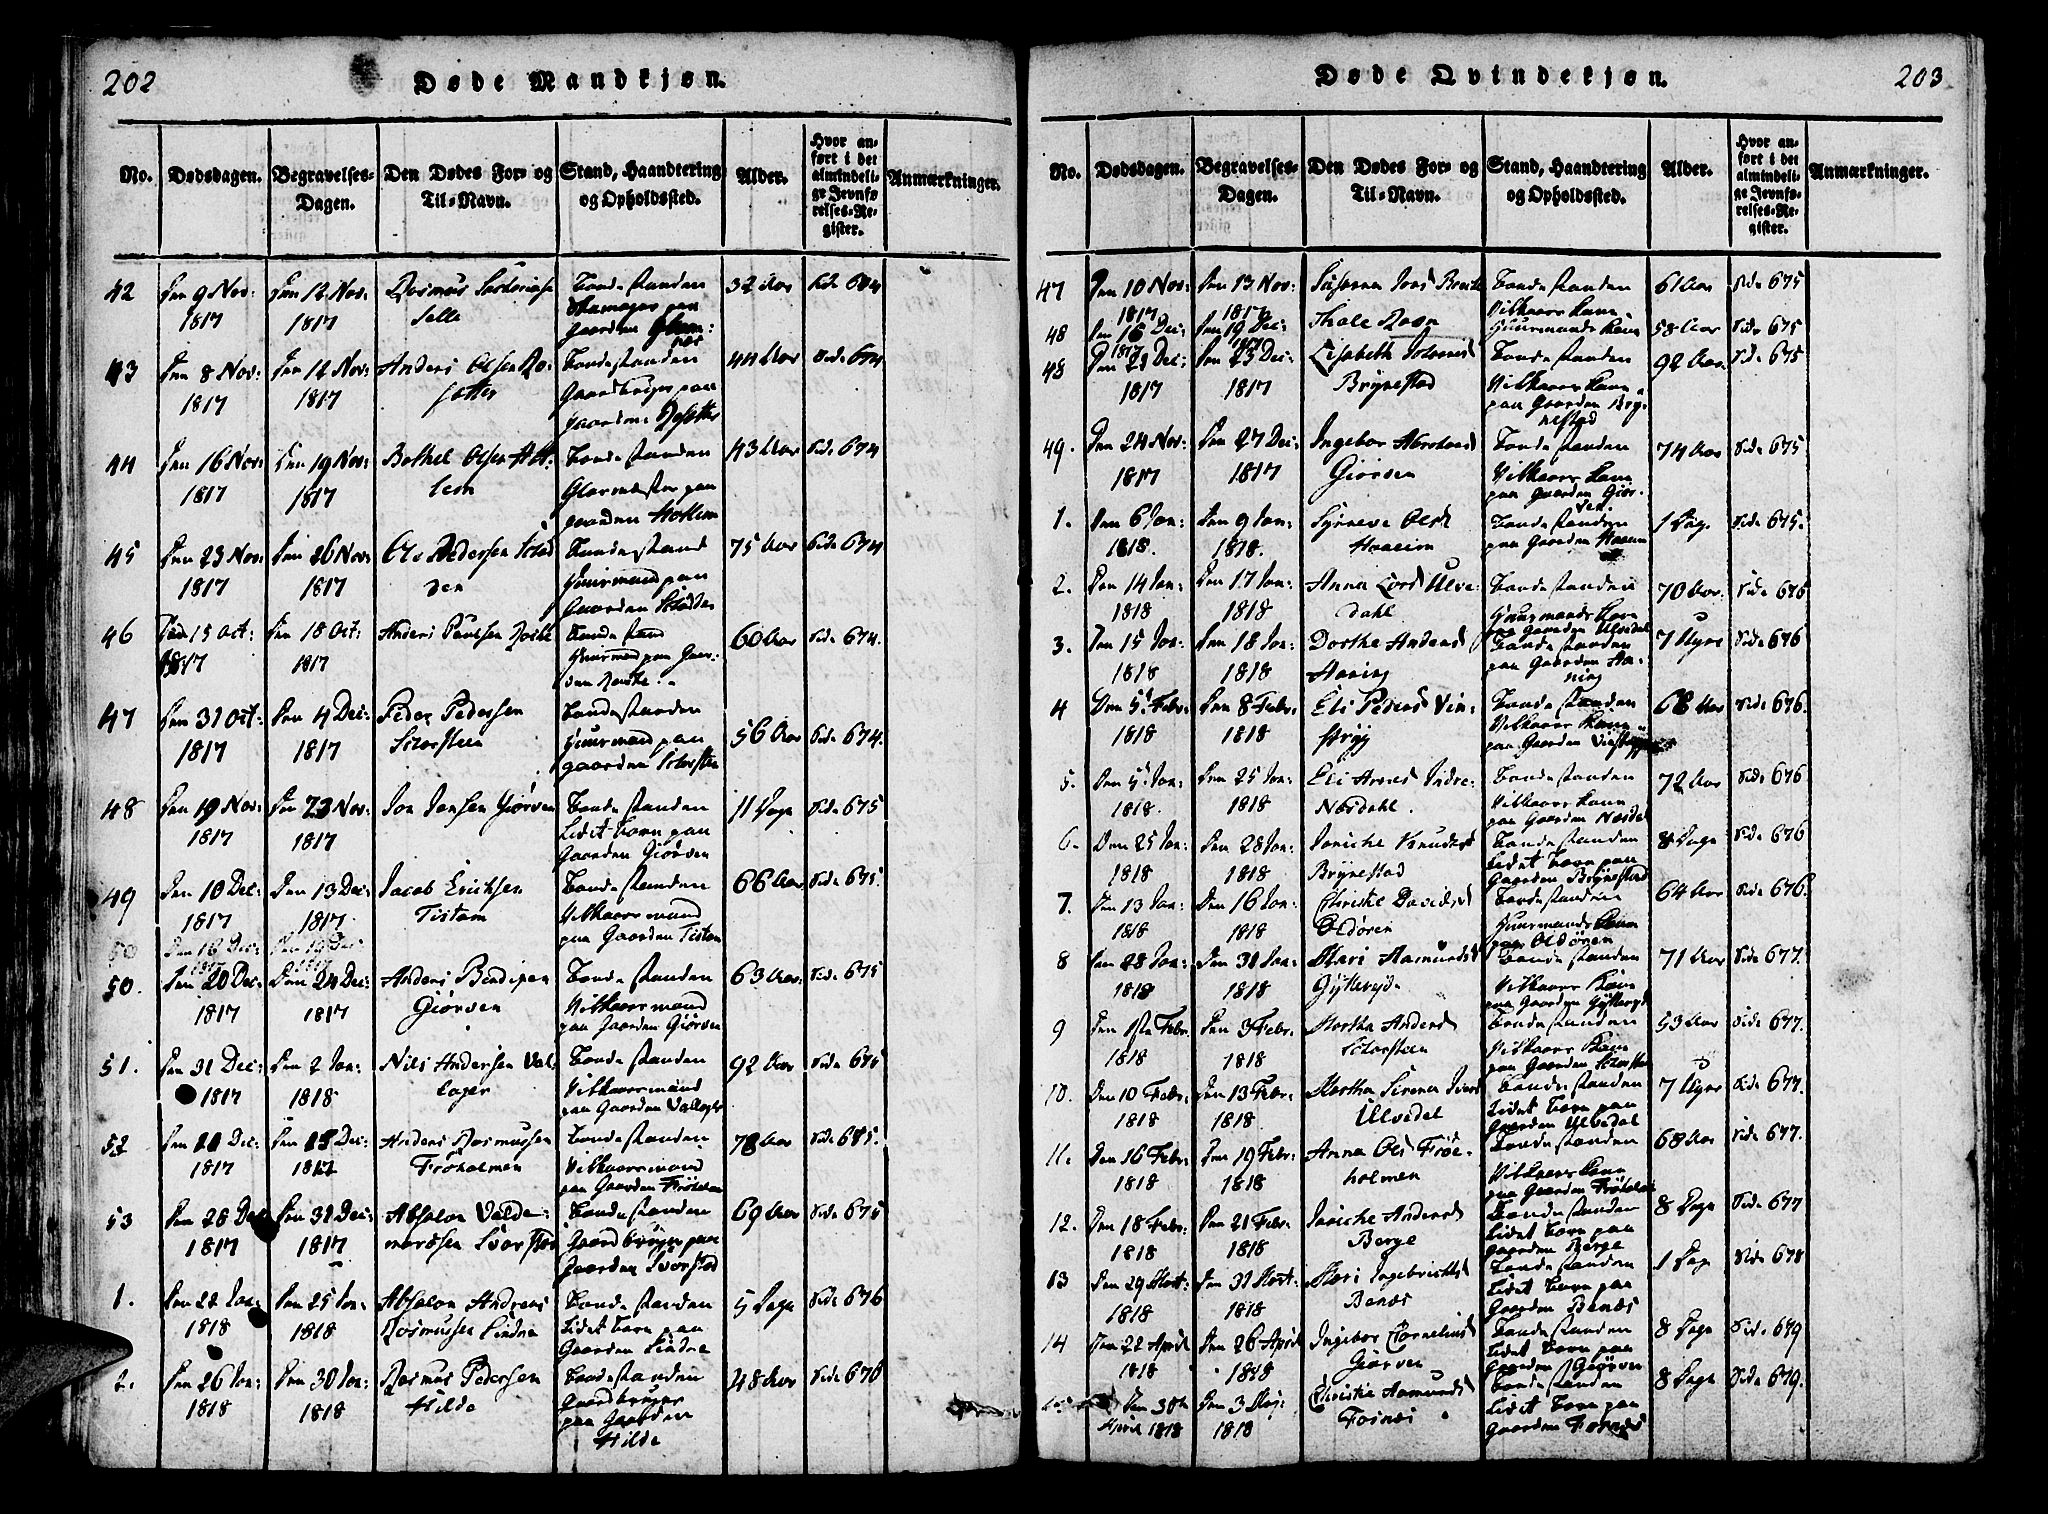 202
Døde Mandkjøn.
No.
Dødsdagen.
Begravelses-
Dagen.
Den Dødes For- og
Til-Navn.
Stand, Haandtering
og Opholdssted.
Alder.
Hvor an-
ført i det
almindeli-
ge Jevnfø-
relses-Re-
gister.
Anmærkninger.
42
Den 9 Nov:
1817
Den 12 Nov:
1817
Rasmus
Bondestanden
paa
Gaarden
32 Aar
Side 674
43
Den 8 Nov:
1817
Den 12 Nov:
1817
Anders Olsen
Bondestanden
Gaardbruger paa
Gaarden
44 Aar
Side 674
44
Den 16 Nov:
1817
Den 19 Nov:
1817
Bothel Olsen
Bondestanden
paa
gaarden
43 Aar
Side 674
45
Den 23 Nov:
1817
Den 26 Nov:
1817
Ole Pedersen
den
Bondestand
Huusmand paa
Gaarden
75 Aar
Side 674
46
Den 15 Oct:
1817
Den 18 Oct:
1817
Anders Paulsen
Bondestand
Huusmand paa Gaar-
den
60 Aar
Side 674.
47
Den 31 Oct:
1817
Den 4 Dec:
1817
Peder Pedersen
Bondestanden
Huusmand paa
gaarden
56 Aar
Side 674.
48
Den 19 Nov:
1817
Den 23 Nov:
1817
Jon Jonsen Giørven
Bondestanden
Lidet Barn paa
Gaarden Giørven
11 Dage
Side 675
49
Den 10 Dec:
1817
Den 13 Dec:
1817
Jacob Ericksen
Tistam
Bondestanden
Vilkaarsmand
paa Gaarden Tistam
66 Aar
Side 675.
50
Den 18 Dec:
1817
Den 19 Dec:
1817
50.
Den 20 Dec:
1817
Den 24 Dec:
1817
Anders Bendixen
Giørven
Bondestanden
Vilkaarsmand
paa Gaarden Giørven
63 Aar
Side 675
51.
Den 31 Dec:
1817
Den 2 Jan:
1818
Nils Andersen Val-
lager
Bondestanden
Vilkaarsmand
paa Gaarden Vallager
92 Aar
Side 675
52
Den 21 Dec:
1817
Dec:
1817
Anders Rasmussen
Frøholmen
Bondestanden
Vilkaarsmand
paa Gaarden Frøholmen
78 Aar
Side 675.
53
Den 28 Dec
1817
Den 31 Dec:
1817
Absalon Valde-
marsen
Bondestanden
Gaardbruger paa
Gaarden
69 Aar
Side 675
1.
Den 22 Jan:
1818
Den 25 Jan:
1818
Absalon Andreas
Rasmussen Lindre
Bondestanden
Lidet Barn paa
Gaarden Lindre
5 Dage
Side 676
2.
Den 26 Jan:
1818
Den 30 Jan:
1818
Rasmus Pedersen
Hilde
Bondestanden
Gaardbruger
paa Gaarden
Hilde
48 Aar
Side 676
Døde Qvindekjøn.
203
No.
Dødsdagen.
Begravelses-
Dagen.
Den Dødes For- og
Til-Navn.
Stand, Haandtering
og Opholdssted.
Alder.
Hvor an-
ført i det
almindeli-
ge Jevnfø-
relses-Re-
gister.
Anmærkninger.
47
Den 10 Nov:
1817
Den 13 Nov:
1817
Susanna
Bondestanden
Vilkaars Kone
61 Aar
Side 675
48
Den 16 Dec:
1817
Den 19 Dec:
1817
Thale
Huusmands Kone
58 Aar
Side 675
48
Den 21 Dec:
1817
Den 23 Dec:
1817
Lisabeth
Brynestad
Bondestanden
Vilkaars Kone
paa Gaarden Bry-
nestad
92 Aar
Side 675
49.
Den 24 Nov:
1817
Den 27 Dec:
1817
Ingebor
Giørven
Bondestanden
Vilkaars Kone
paa Gaarden Giør-
ven.
74 Aar
Side 675
1.
Den 6 Jan:
1818.
Den 9 Jan:
1818.
Synneve Olsd
Haaeim
Bondestanden
paa Gaarden Haaeim
1 Dage
Side 675.
2.
Den 14 Jan:
1818
Den 17 Jan:
1818
Anna Larsd Ulve-
dahl
Bondestanden
Huusmands Kone
paa Gaarden Ulvedal
70 Aar:
Side 676
3.
Den 15 Jan:
1818
Den 18 Jan:
1818
Dorthe Andersd
Aaning
Bondestanden
paa Gaarden Aa-
ning
7 Uger
Side 676
4
Den 5 Febr:
1818
Den 8 Febr:
1818
Eli Pedersd Vin-
Bondestanden
Vilkaars Kone
paa Gaarden
68 Aar
Side 676.
5.
Den 5 Jan:
1818.
Den 25 Jan:
1818
Eli Arnesd Indre-
Næsdahl.
Bondestanden
Vilkaars Kone
paa Gaarden Næsdal
72 Aar
Side 676
6.
Den 25 Jan:
1818
Den 28 Jan:
1818
Joriche Knudsd
Brynestad
Bondestanden
Lidet Barn paa
Gaarden Brynestad
8 Dage
Side 676
7.
Den 13 Jan:
1818
Den 16 Jan:
1818
Christie Davidsd
Oldøren
Bondestanden
Huusmands Kone
paa Oldøren
64 Aar
Side 676.
8
Den 28 Jan:
1818
Den 31 Jan:
1818
Mari Aamundsd
Gytteryd
Bondestanden
Vilkaars Kone
paa Gaarden
71 Aar
Side 677.
9
Den 1ste Febr:
1818
Den 3 Febr:
1818
Martha Andersd
Bondestanden
Vilkaars Kone
paa Gaarden
53 Aar
Side 677.
10.
Den 10 Febr:
1818
Den 13 Febr:
1818.
Martha Sirena Iversd
Ulvedal
Bondestanden
Lidet Barn paa
Gaarden Ulvedal
7 Uger
Side 677.
11.
Den 16 Febr:
1818
Den 19 Febr:
1818
Anna Olsd Frøe-
holmen
Bondestanden
Vilkaars Kone
paa Gaarden Frøholmen
68 Aar
Side 677.
12.
Den 18 Febr:
1818
Den 21 Febr:
1818
Joriche Andersd
Berge
Bondestanden
Lidet Barn paa
gaarden Berge
8 Dage
Side 677
13
Den 29 Mart:
1818
Den 31 Mart:
1818
Mari Ingebrichtsd
Benæs
Bondestanden
Lidet Barn paa
Gaarden Benæs
1 Dag
Side 678
14
Den 22 April
1818
Den 26 April
1818
Ingebor Cornelius
Giørven
Bondestanden
Lidet Barn paa
Gaarden Giørven
8 Dage
Side 679
Den 30te
April 1818
Den 3 Maj:
1818
Christie Aamundsd
Fosnæs
Bondestanden
Lidet Barn paa
Gaarden Fosnæs
8 Dage
Side 679.